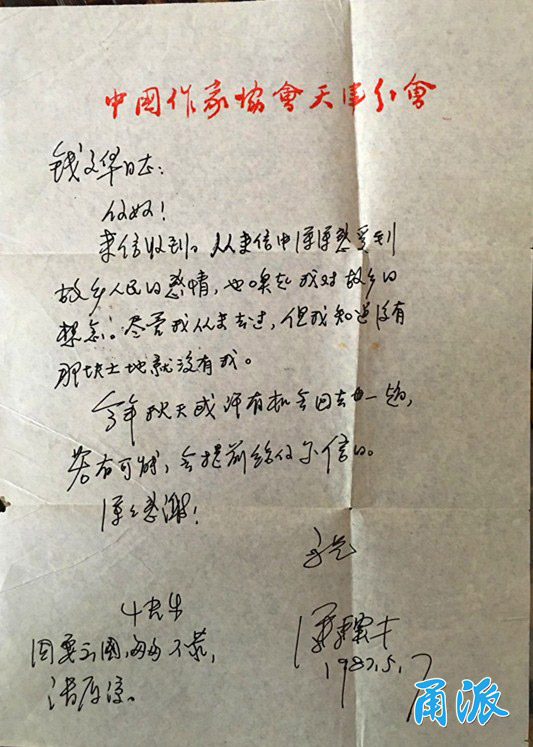 中國作家協會天津分會
钱文华同志：
你好！
来信收到。从来信中深深感受到
故乡人民的感情，也唤起我对故乡的
想念。尽管我从未去过，但我知道没有
那块土地就没有我。
今年秋天或许有机会回去一趟，
若有可能，会提前给你写信的。
深深感谢！
因要出国，匆匆不恭，
请原谅。
冯骥才
1987.5.7
甬派